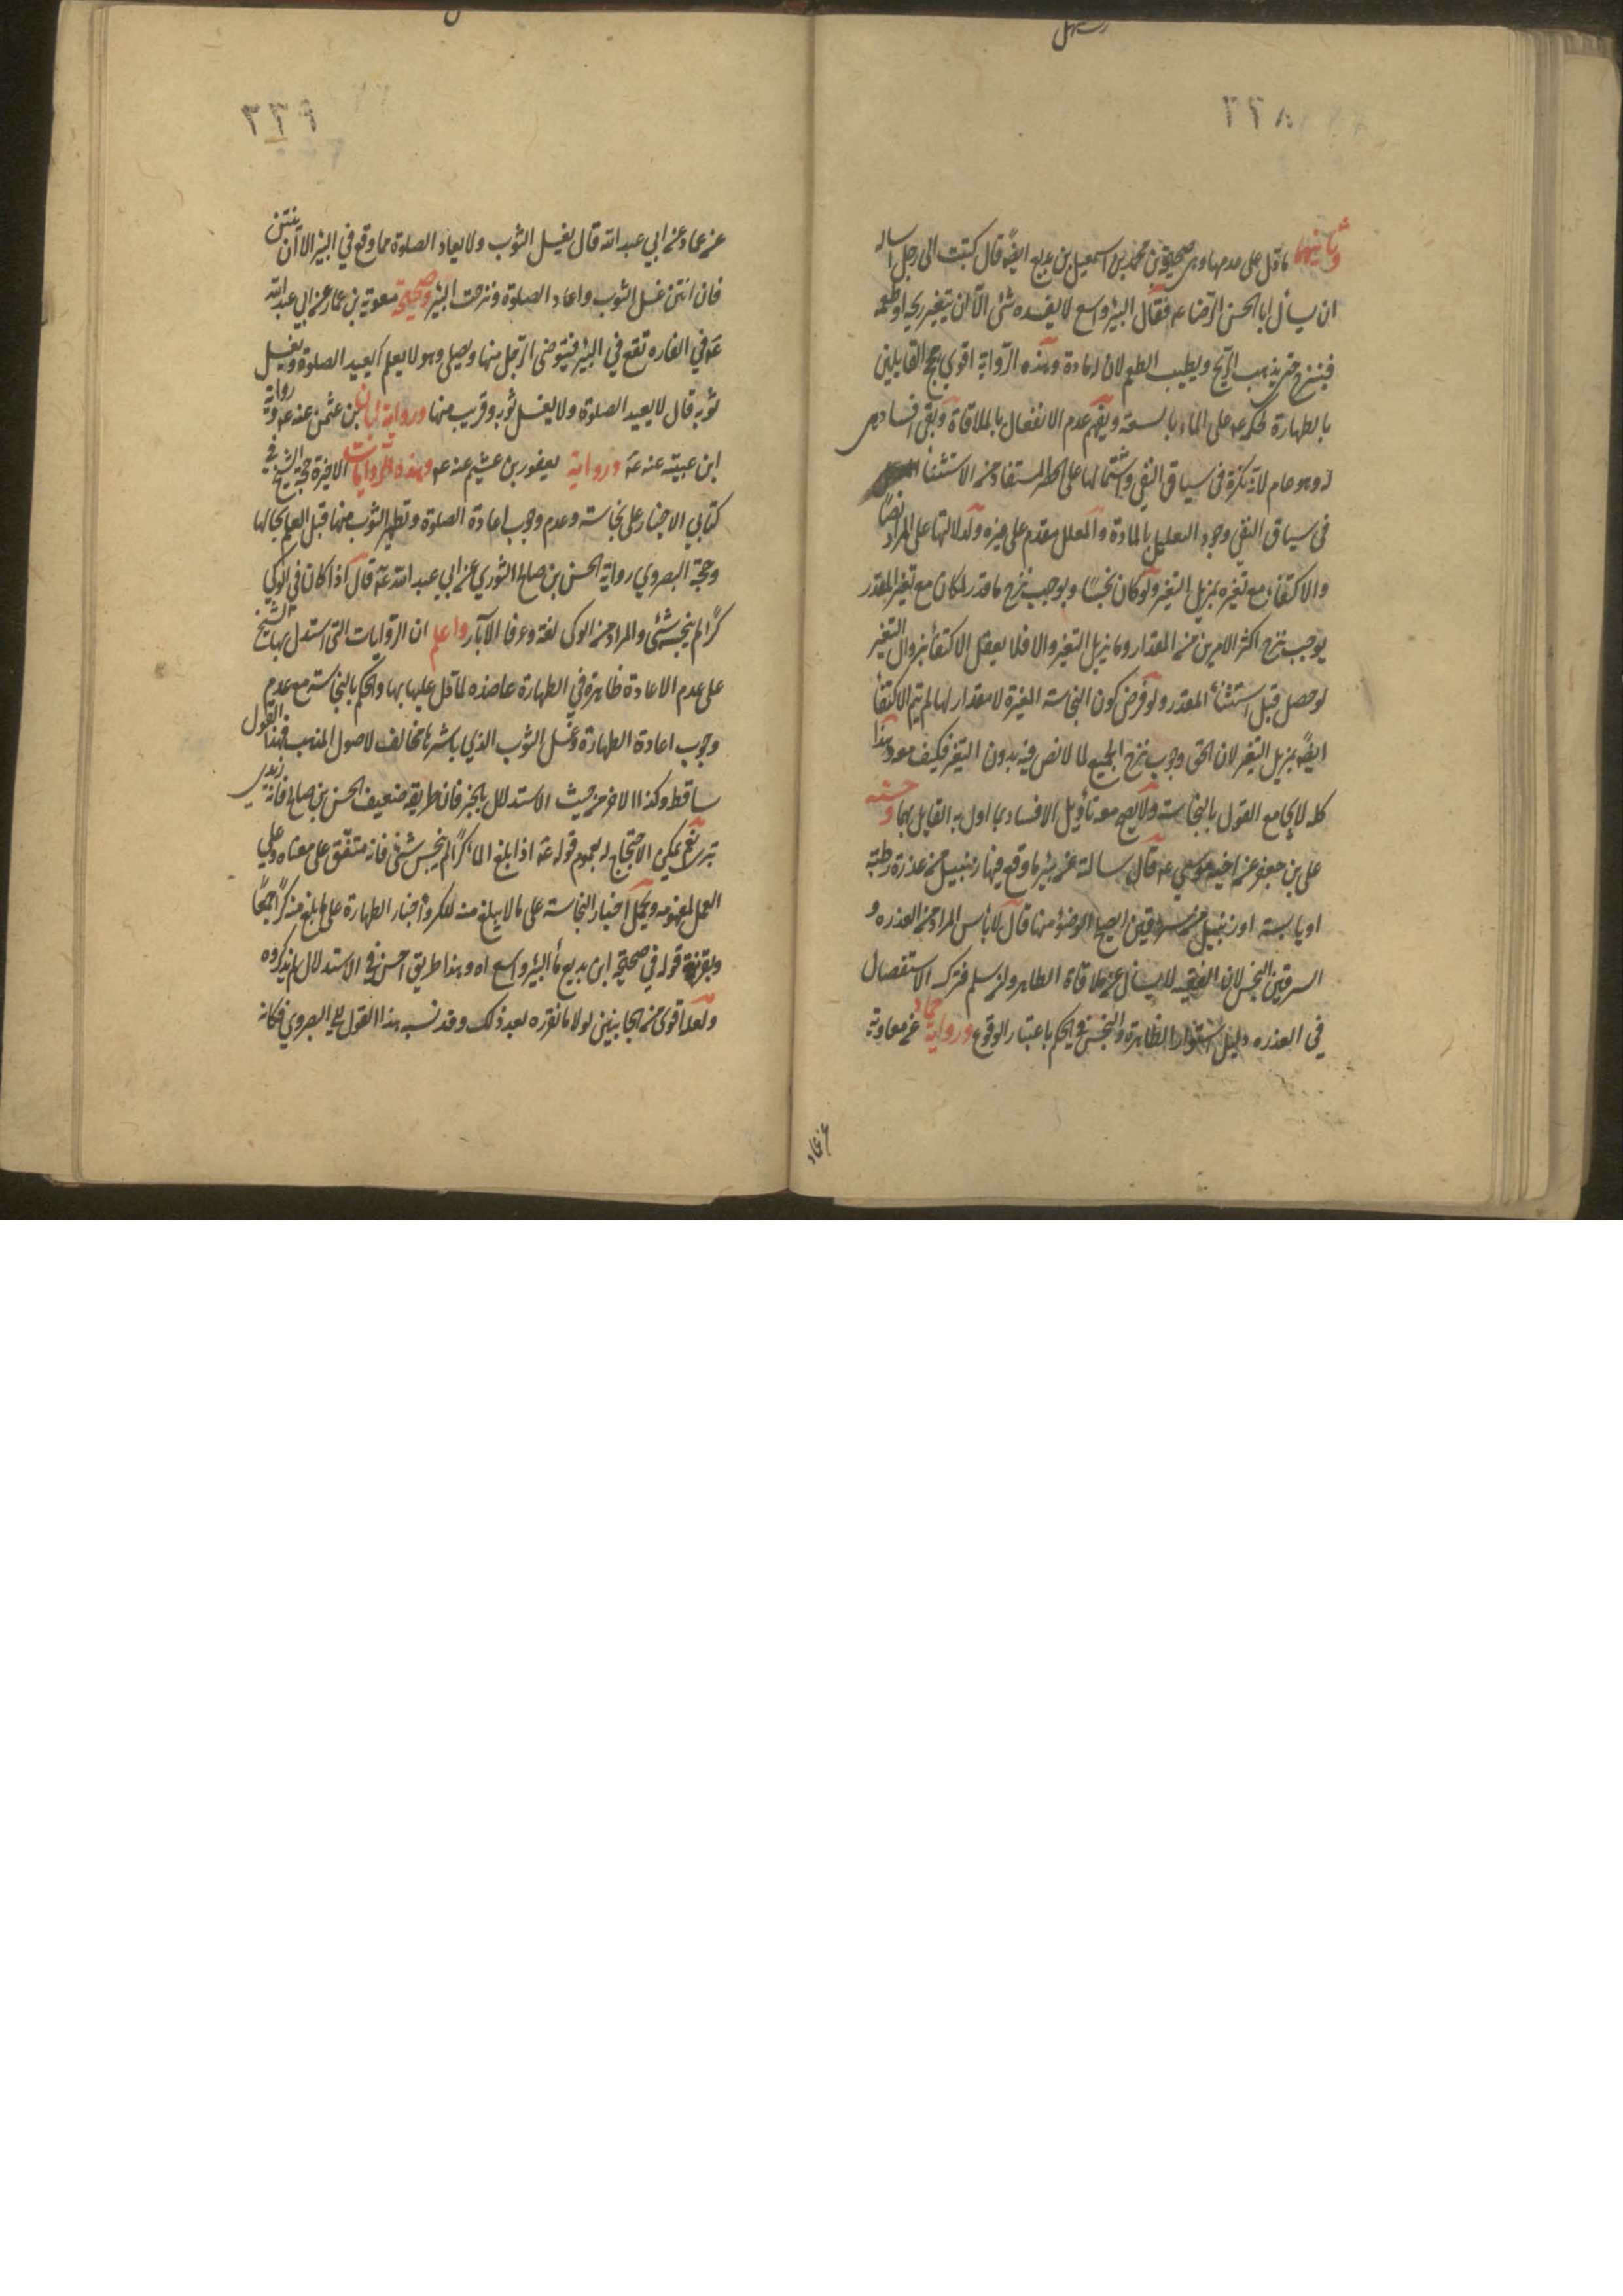 ٢٢٨
وثانيهما ما دل على عدمها وهي صحيحة محمد بن اسمعيل بن بزيع ايضًا قال كتبت الى رجل اساله
ان يسأل ابا الحسن الرضا عه فقال البئر واسع لا يفسده شئ الا ان يتغير ريحه او طعمه
فينزح حتى يذهب الريح ويطيب الطعم لان له مادة وهذه الرواية اقوى حجج القايلين
بالطهارة لحكمه عه على الماء بالسعة ويفهم عدم الانفعال بالملاقاة وبنفي افساد شئ
له وهو عام لانه نكرة في سياق النفي واشتمالها على الحصر المستفاد من الاستثناء
في سياق النفي وجود التعليل بالمادة والمعلل مقدم على غيره ولدلالتها على المراد نصًا
والاكتفاء مع تغيره بمزيل التغير ولو كان نجسًا ويوجب نزح ما قدر لكان مع تغير المقدر
يوجب نزح اكثر الامرين من المقدار وما يزيل التغير والا فلا يعقل الاكتفاء بزوال التغير
لو حصل قبل استثناء المقدر ولو فرض كون النجاسة المغيرة لا مقدار لها لم يتم الاكتفاء
ايضًا بمزيل التغير لان الحق وجوب نزح الجميع لما لا نص فيه بدون التغير فكيف معه وهذا
كله لا يجامع القول بالنجاسة ولا يصح معه تأويل الافساد بما اوله القايل بها وحسنة
علي بن جعفر عن اخيه موسى عه قال سالته عن بئر ما وقع فيها زنبيل من عذرة رطبة
او يابسة او زنبيل من سرقين ايصلح الوضؤ منها قال لا بأس المراد من العذره و
السرقين النجس لان الفقيه لا يسأل عن ملاقاة الطاهر ولئن سلم فترك الاستفصال
في العذره دليل استواء الطاهرة والنجس في الحكم باعتبار الوقوع ورواية حماد عن معاوية
عن عاد
٢٢٩
عن عاد عن ابي عبد الله قال يغسل الثوب ولا يعاد الصلوة مما وقع في البئر الا ان ينتن
فان انتن غسل الثوب واعاد الصلوة ونزحت البئر وصحيحة معوية بن عمار عن ابي عبد الله
عه في الفاره تقع في البئر فيتوضى الرجل منها ويصلى وهو لا يعلم أيعيد الصلوة ويغسل
ثوبه قال لا يعيد الصلوة ولا يغسل ثوبه وقريب منها ورواية ابان بن عثمن عنه عه ورواية
ابن عيينة عنه عه ورواية يعفور بن عيثم عنه عه وهذه الروايات الاخيرة حجة الشيخ في
كتابي الاخبار على نجاسته وعدم وجوب اعادة الصلوة وتطهير الثوب منها قبل العلم بحالها
وحجة البصروي رواية الحسن بن صالح الثوري عن ابي عبد الله عه قال اذا كان في الركي
كرًا لم ينجسه شئ والمراد من الركي لغة وعرفا الآبار واعلم ان الروايات التي استدل بها الشيخ
على عدم الاعادة ظاهرة في الطهارة عاضده لما دل عليها بها والحكم بالنجاسة مع عدم
وجوب اعادة الطهارة وغسل الثوب الذي باشرها مخالف لاصول المذهب فهذا القول
ساقط وكذا الاخر من حيث الاستدلال بالخبر فان طريقه ضعيف الحسن بن صالح فانه زيدي
بتري نعم يمكن الاحتجاج له بعموم قوله عه اذا بلغ الماء كرًا لم ينجس شئ فانه متفق على معناه وعلى
العمل بمفهومه ويحمل اخبار النجاسة على ما لا يبلغ منه الكر واخبار الطهارة على ما بلغ منه كرًا جمعًا
وبقرينة قوله في صحيحة ابن بزيع ماء البئر واسع اه وهذا طريق احسن في الاستدلال لم يذكروه
ولعله اقوى من الجانبين لولا ما نقرره بعد ذلك وقد نسب هذا القول الى البصروي فكانه